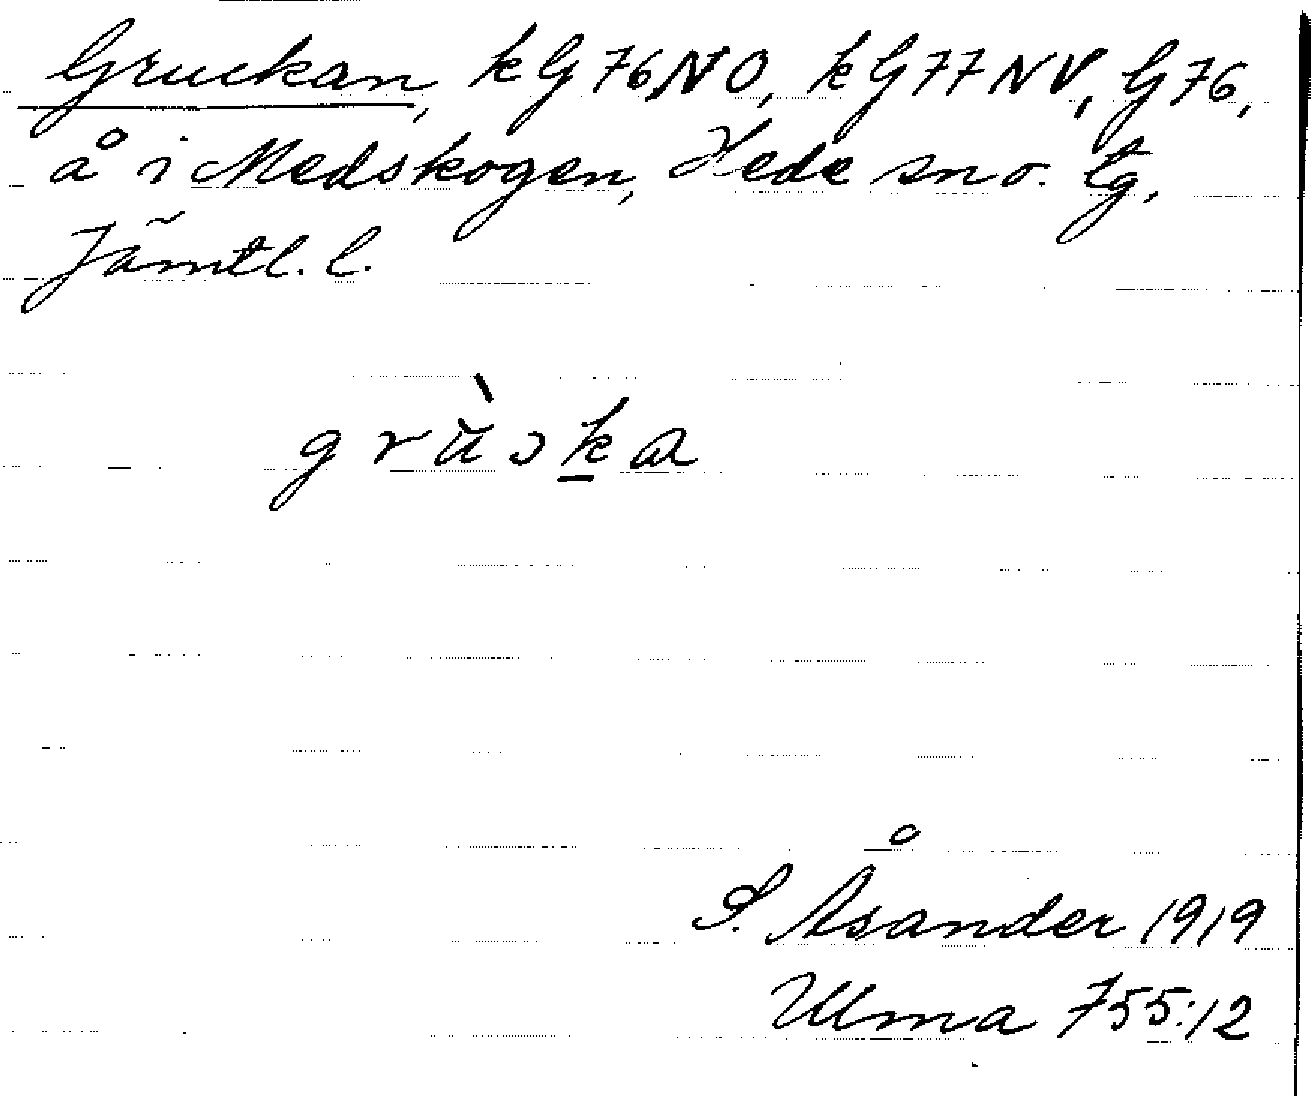 Gruckan, kG76NO, kG77NV, G76,
å i Medskogen, Hede sn o. tg,
Jämtl. l.
S. Åsander 1919
Ulma 755:12